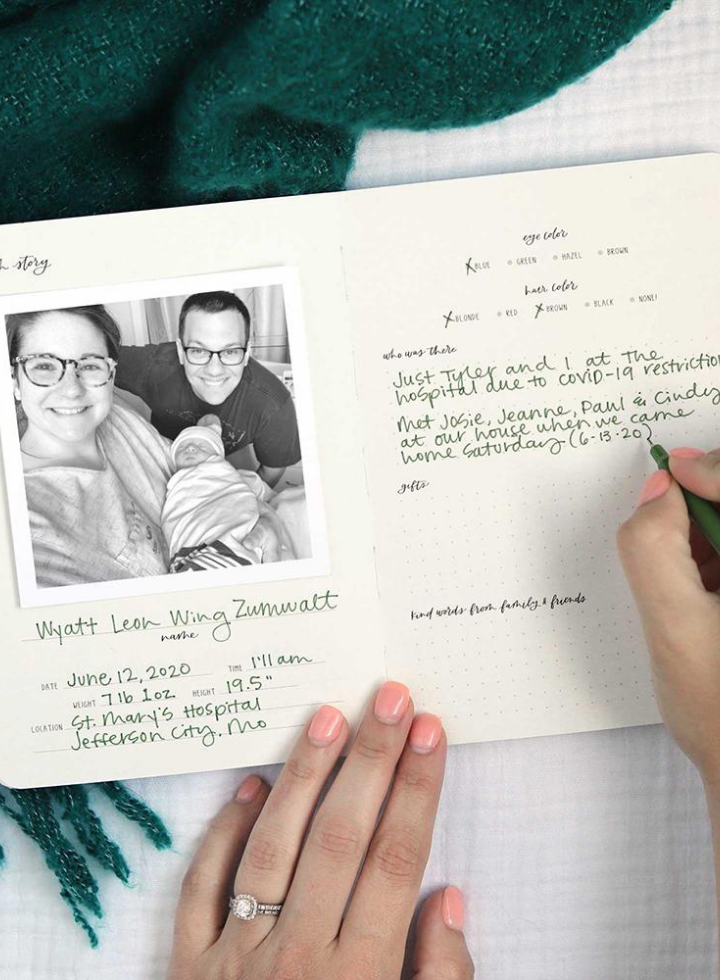 story
Wyatt Leon Wing Zumwalt
name
DATE June 12, 2020 TIME 1:11 am
WEIGHT 7 lb 1 oz HEIGHT 19.5"
LOCATION St. Mary's Hospital
Jefferson City, Mo
eye color
X BLUE GREEN HAZEL BROWN
hair color
X BLONDE RED X BROWN BLACK NONE!
who was there
Just Tyler and I at the
hospital due to COVID-19 restriction
Met Josie, Jeanne, Paul & Cindy
at our house when we came
home Saturday (6-13-20)
gifts
kind words from family & friends